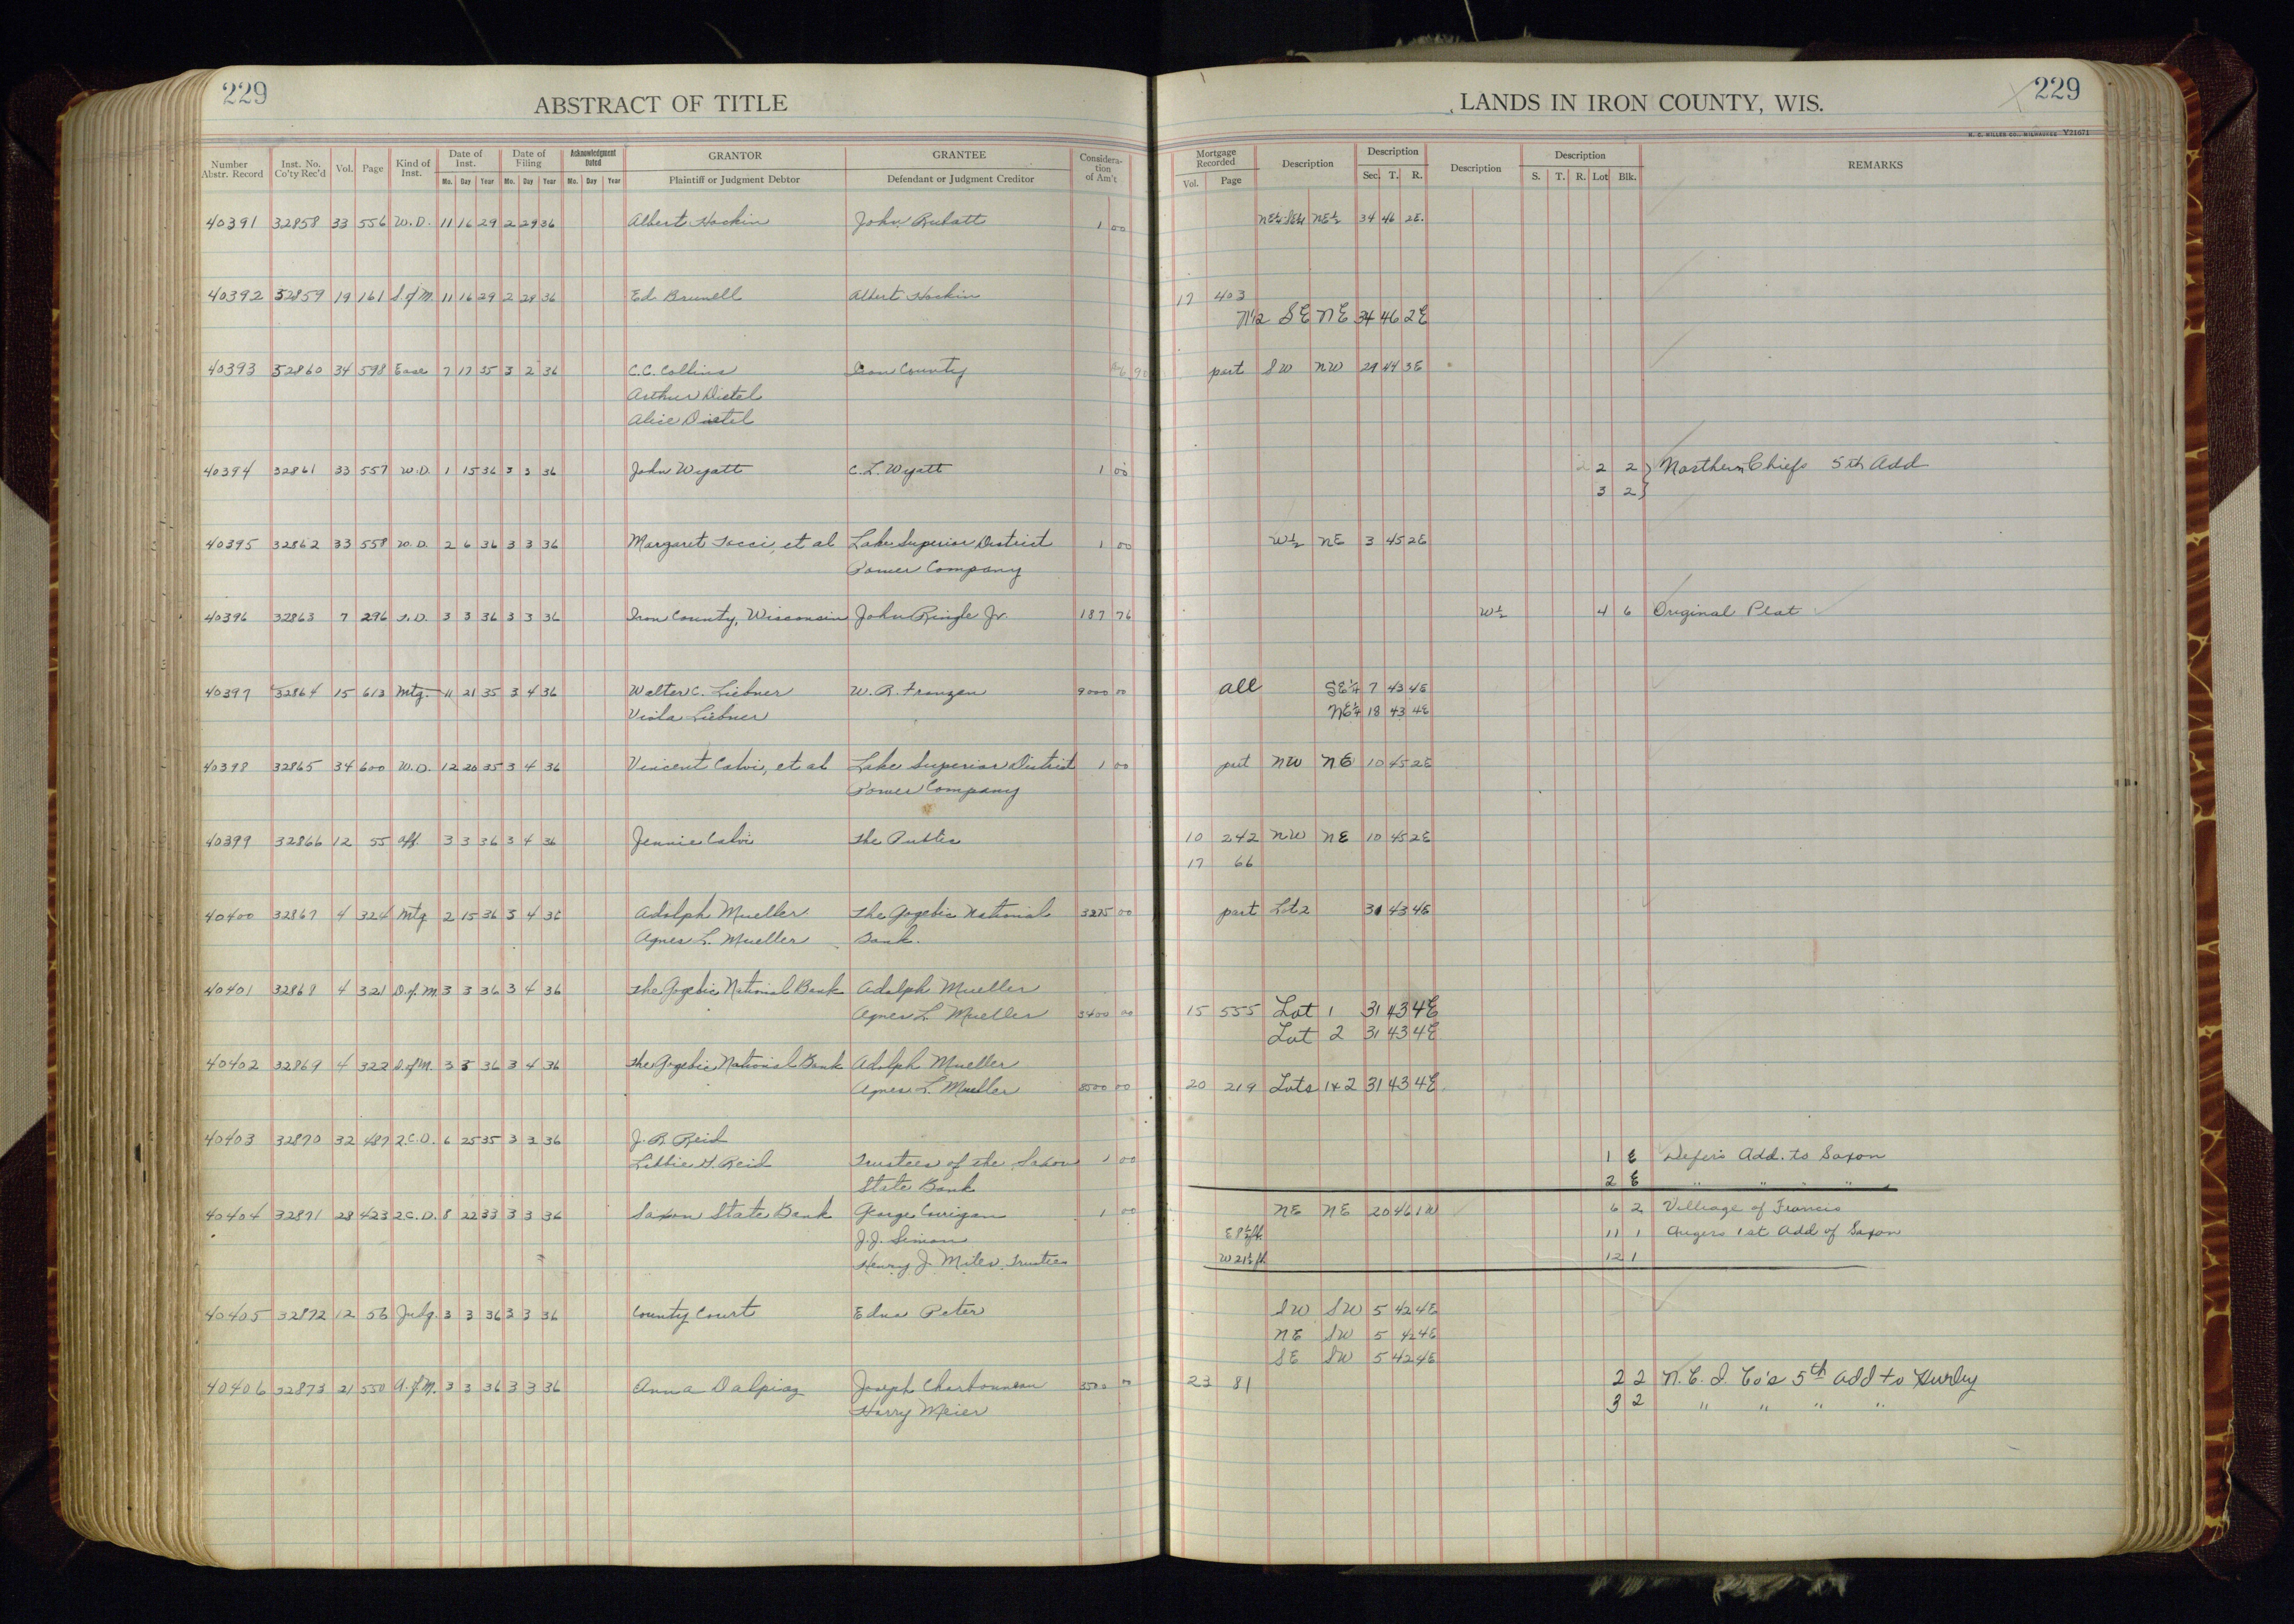 229
ABSTRACT OF TITLE
LANDS IN IRON COUNTY, WIS.
229
H. C. MILLER CO., MILWAUKEE V21071
Number Abstr. Record Inst. No. Co'ty Rec'd Vol. Page Kind of Inst. Date of Inst. Date of Filing Acknowledgment Dated GRANTOR GRANTEE Consideration of Am't Mortgage Recorded Description Description Description Description REMARKS
Mo. Day Year Mo. Day Year Mo. Day Year Plaintiff or Judgment Debtor Defendant or Judgment Creditor Vol. Page Sec. T. R. S. T. R. Lot Blk.
40391 32858 33 556 W.D. 11 16 29 2 29 36 Albert Hockin John Rubatt 1 00 NE¼ SE¼ NE¼ 34 46 2E.
40392 32859 19 161 S. of M. 11 16 29 2 29 36 Ed Brunell Albert Hockin 17 403
N½ SE NE 34 46 2E
40393 32860 34 598 Ease 7 17 35 3 2 36 C.C. Collins Iron County part SW NW 29 44 3E
Arthur Distel
Alice Distel
40394 32861 33 557 W.D. 1 15 36 3 3 36 John Wyatt C.L. Wyatt 1 00 2 2 } Northern Chiefs 5th Add
3 2 }
40395 32862 33 558 W.D. 2 6 36 3 3 36 Margaret Tocci, et al Lake Superior District 1 00 W½ NE 3 45 2E
Power Company
40396 32863 7 296 T.D. 3 3 36 3 3 36 Iron County, Wisconsin John Ringle Jr. 187 76 W½ 4 6 Original Plat
40397 32864 15 613 Mtg. 11 21 35 3 4 36 Walter C. Liebner W. R. Franzen 9000 00 all SE¼ 7 43 4E
Viola Liebner NE¼ 18 43 4E
40398 32865 34 600 W.D. 12 20 35 3 4 36 Vincent Calvi, et al Lake Superior District 1 00 part NW NE 10 45 2E
Power Company
40399 32866 12 55 Aff. 3 3 36 3 4 36 Jennie Calvi The Public 10 242 NW NE 10 45 2E
17 66
40400 32867 4 324 Mtg 2 15 36 3 4 36 Adolph Mueller The Gogebic National 3275 00 part Lot 2 31 43 4E
Agnes L. Mueller Bank.
40401 32868 4 321 D. of M. 3 3 36 3 4 36 The Gogebic National Bank Adolph Mueller
Agnes L. Mueller 3400 00 15 555 Lot 1 31 43 4E
Lot 2 31 43 4E
40402 32869 4 322 D. of M. 3 5 36 3 4 36 The Gogebic National Bank Adolph Mueller
Agnes L. Mueller 8500 00 20 219 Lots 1&2 31 43 4E
40403 32870 32 487 2.C.D. 6 25 35 3 3 36 J. R. Reid
Libbie H. Reid Trustees of the Saxon 1 00 1 E Defer's Add. to Saxon
State Bank 2 E " " " "
40404 32871 28 423 2C.D. 8 22 33 3 3 36 Saxon State Bank George Corrigan 1 00 NE NE 20 46 1W 6 2 Village of Francis
J.J. Simon E 8½ ft. 11 1 Angers 1st Add of Saxon
Henry J. Miles, Trustees W 21½ ft. 12 1
40405 32872 12 56 Judg. 3 3 36 3 3 36 County Court Edna Peter SW SW 5 42 4E
NE SW 5 42 4E
SE SW 5 42 4E
40406 32873 21 550 A. of M. 3 3 36 3 3 36 Anna Dalpiaz Joseph Charbonneau 3500 00 23 81 2 2 N. C. I. Co's 5th add to Hurley
Harry Meier 3 2 " " " "